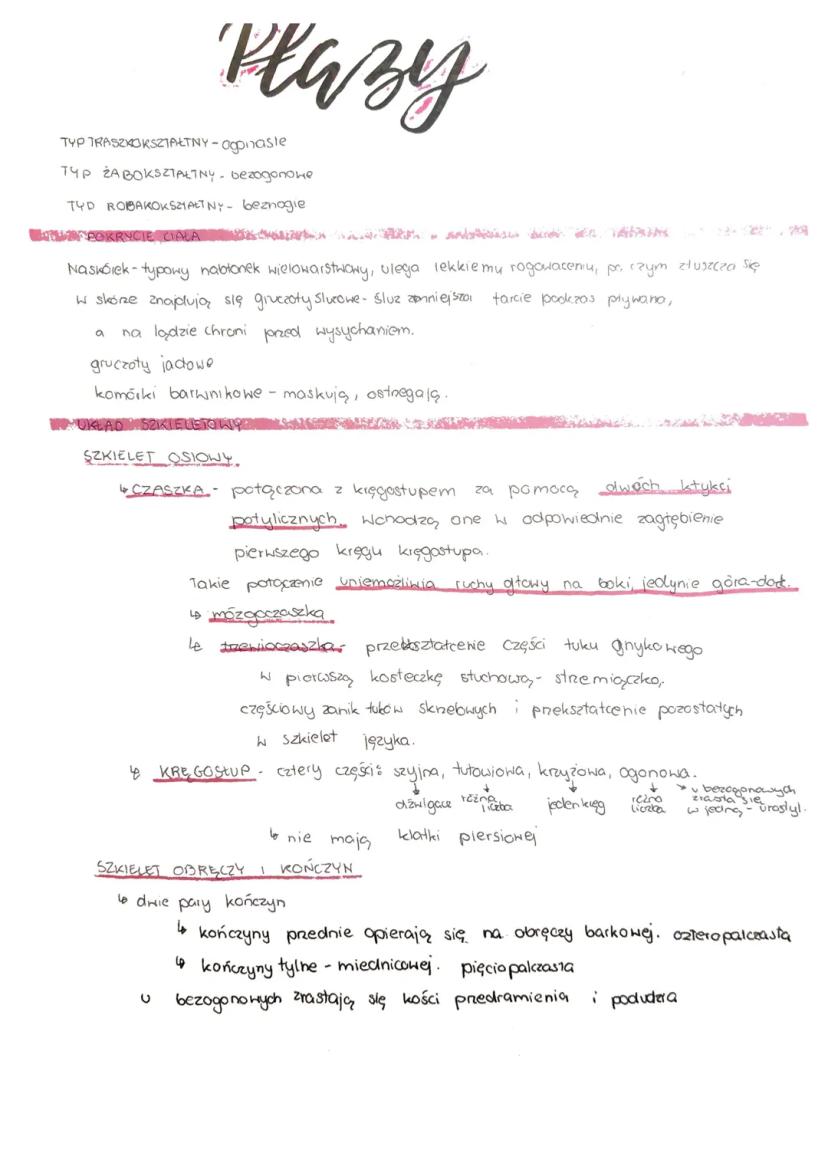 Płazy
TYP TRASZKOKSZTAŁTNY - ogoniaste
TYP ŻABOKSZTAŁTNY - bezogonowe
TYP ROBAKOKSZTAŁTNY - beznogie
POKRYCIE CIAŁA
Naskórek - typowy nabłonek wielowarstwowy, ulega lekkiemu rogowaceniu, po czym złuszcza się
w skórze znajdują się gruczoły śluzowe - śluz zmniejsza tarcie podczas pływania,
a na lądzie chroni przed wysychaniem.
gruczoły jadowe
komórki barwnikowe - maskują, ostrzegają.
UKŁAD SZKIELETOWY
SZKIELET OSIOWY
↳ CZASZKA - połączona z kręgosłupem za pomocą dwóch kłykci
potylicznych. Wchodzą one w odpowiednie zagłębienie
pierwszego kręgu kręgosłupa.
Takie połączenie uniemożliwia ruchy głowy na boki, jedynie góra-dół.
↳ mózgoczaszka
↳ trzewioczaszka - przekształcenie części łuku gnykowego
w pierwszą kosteczkę słuchową - strzemiączko,
częściowy zanik łuków skrzelowych i przekształcenie pozostałych
w szkielet języka.
↳ KRĘGOSŁUP - cztery części: szyjna, tułowiowa, krzyżowa, ogonowa.
dźwigacz różna liczba jeden kręg różna liczba u bezogonowych zrasta się w jedną - urostyl.
↳ nie mają klatki piersiowej
SZKIELET OBRĘCZY I KOŃCZYN
↳ dwie pary kończyn
↳ kończyny przednie opierają się na obręczy barkowej. czteropalczasta
↳ kończyny tylne - miednicowej. pięciopalczasta
U bezogonowych zrastają się kości przedramienia i podudzia